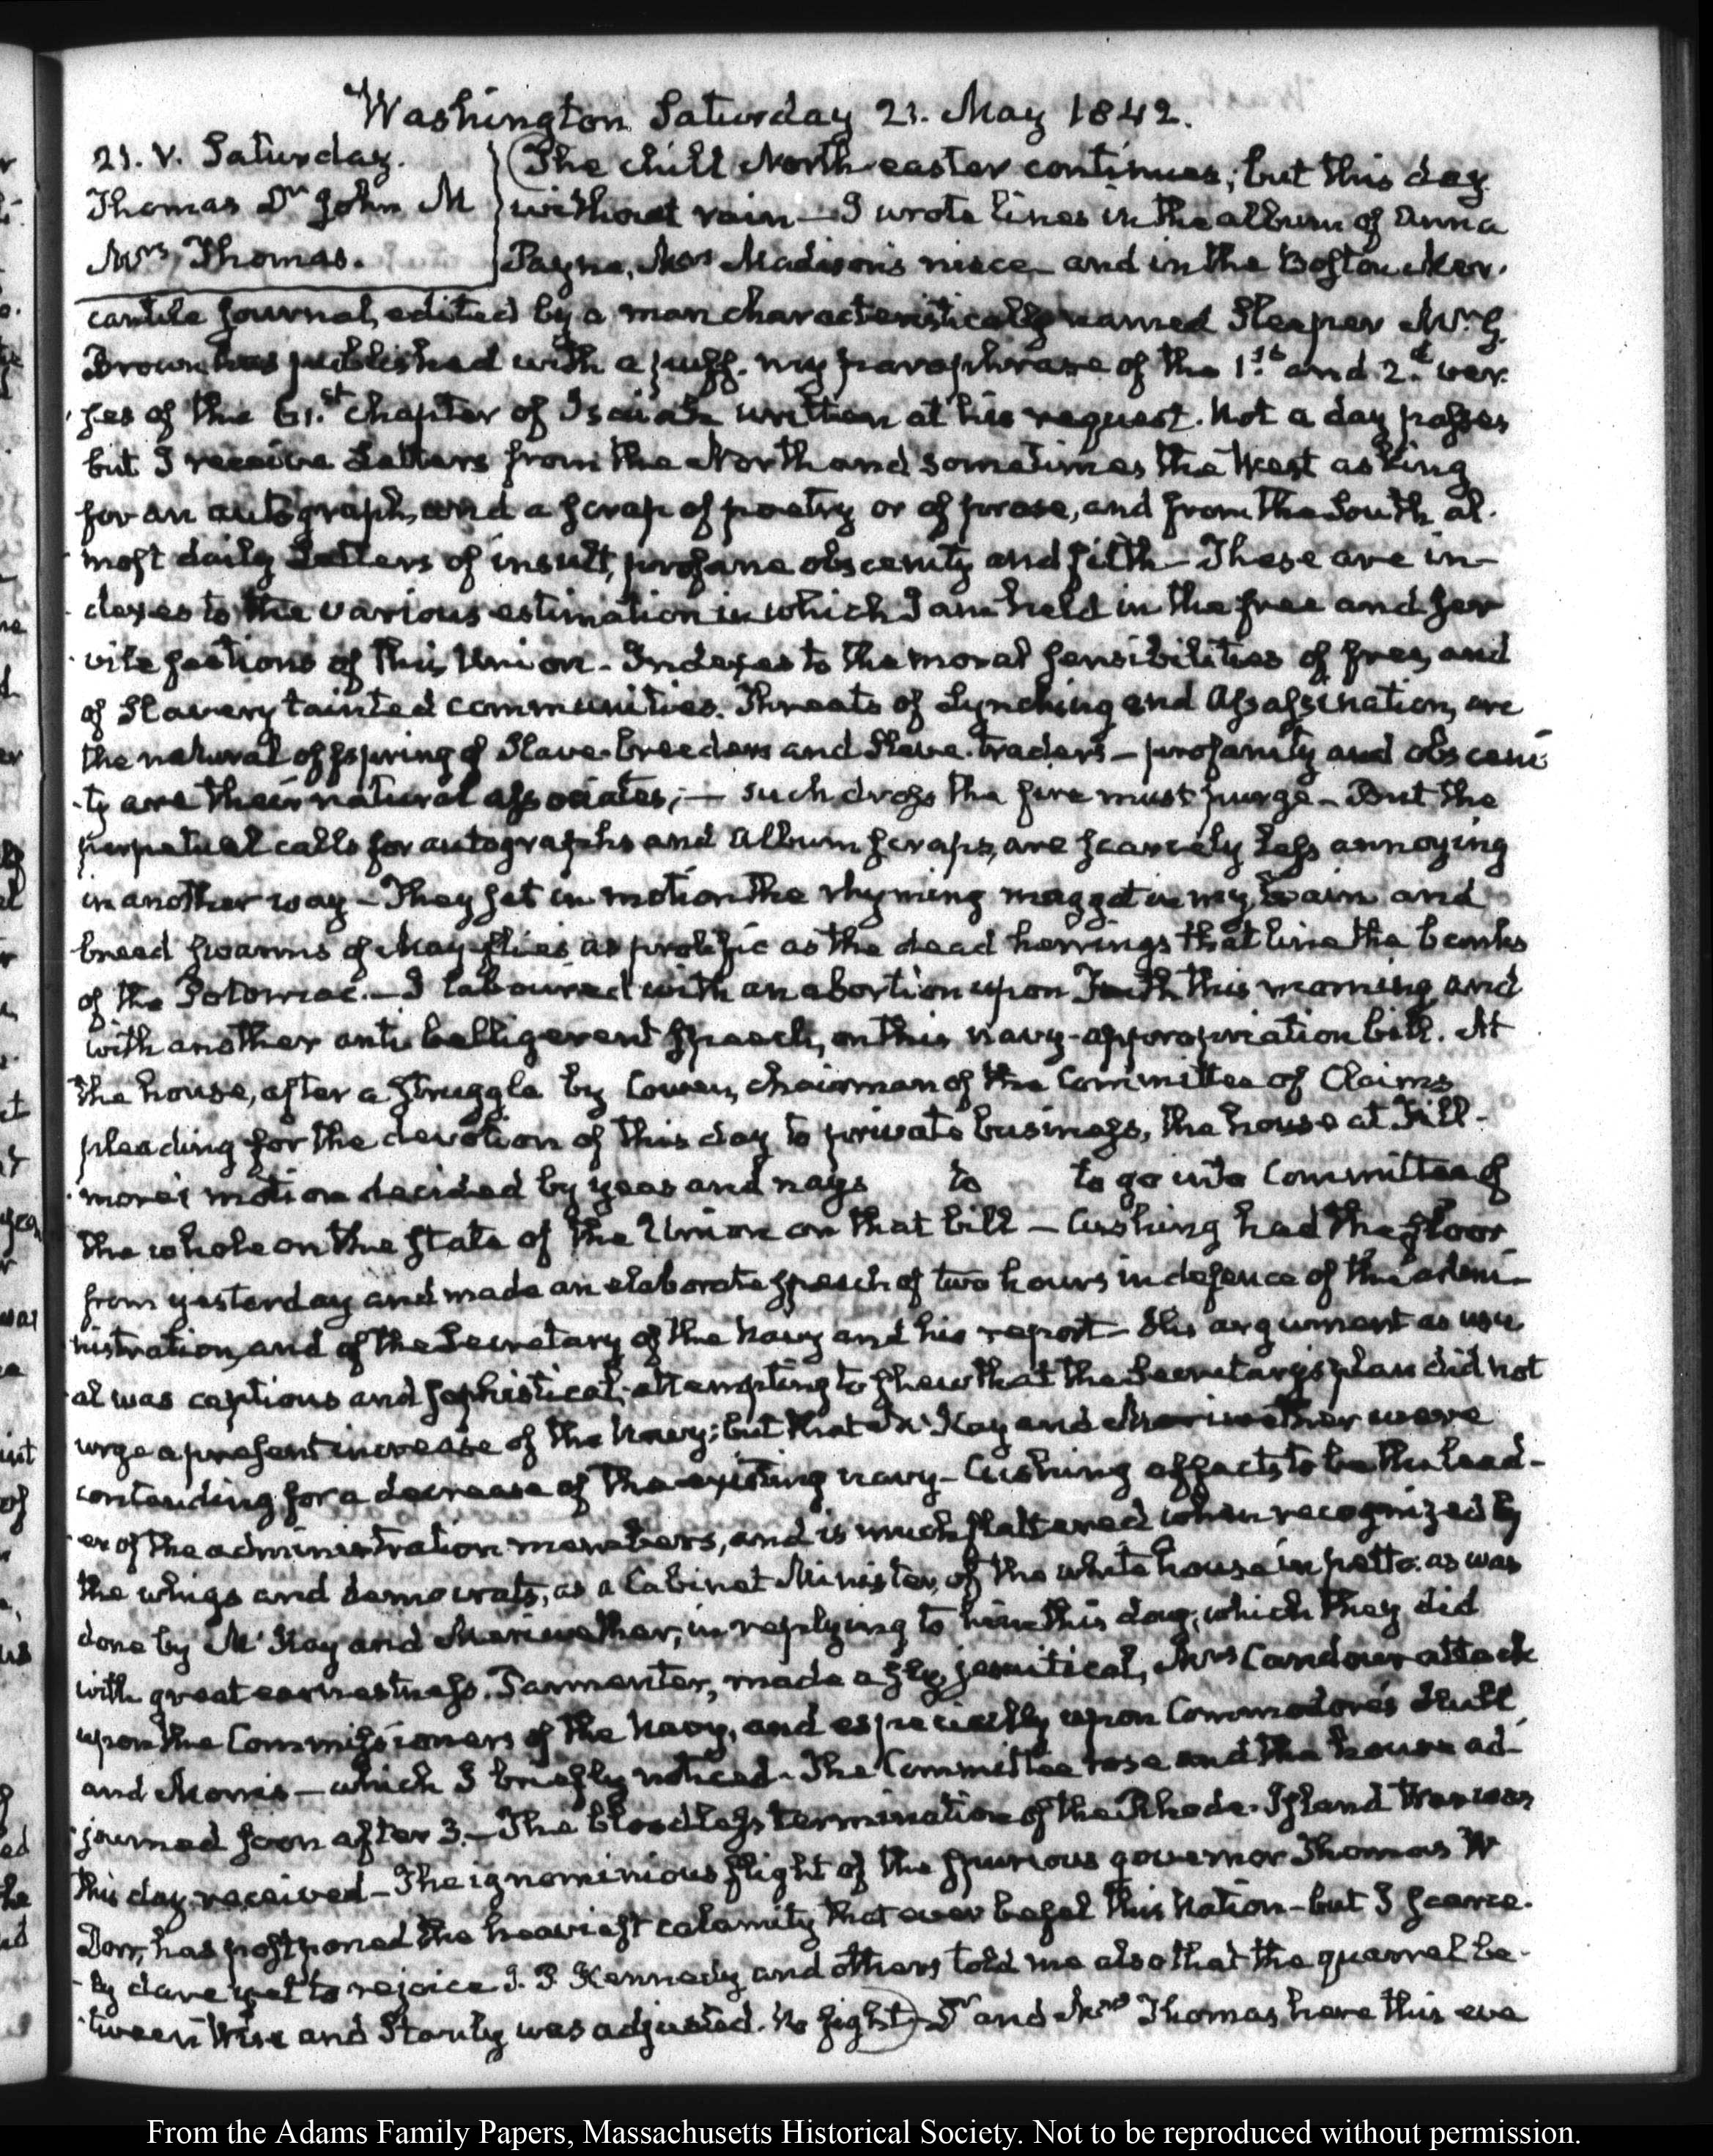 Washington Saturday 21. May 1842.
21. V. Saturday.
Thomas Dr John M
Mrs Thomas.
The chill North-easter continues; but this day
without rain — I wrote lines in the album of Anna
Payne, Mrs Madison's niece and in the Boston Mer-
cantile Journal, edited by a man characteristically named Sleeper Mr G.
Brown has published with a puff. my paraphrase of the 1.st and 2.d ver-
ses of the 61.st chapter of Isaiah written at his request. Not a day passes
but I receive Letters from the North and sometimes the West asking
for an autograph, and a scrap of poetry or of prose, and from the South al-
most daily Letters of insult, profane obscenity and filth — These are in-
dexes to the various estimation in which I am held in the free and ser
vile sections of this Union — Indexes to the moral sensibilities of free, and
of Slavery tainted communities. Threats of Lynching and Assassination, are
the natural offspring of Slave-breeders and Slave-traders — profanity and obsceni
ty are their natural associates; — such dross the fire must purge — But the
perpetual calls for autographs and album scraps, are scarcely less annoying
in another way — They set in motion the rhyming maggot in my brain and
breed swarms of May-flies as prolific as the dead herrings that line the banks
of the Potomac. — I laboured with an abortion upon this morning, and
with another anti belligerent speech, on this navy-appropriation bill. At
the house, after a struggle by Cowen, chairman of the Committee of Claims
pleading for the devotion of this day to private business, the house at Fill-
more's motion decided by yeas and nays to to go into Committee of
the whole on the state of the Union on that bill — Cushing had the floor
from yesterday and made an elaborate speech of two hours in defence of the admi-
nistration, and of the Secretary of the Navy and his report — His argument as usu
al was captious and sophistical; attempting to shew that the Secretary's plan did not
urge a present increase of the Navy; but that McKay and Meriwether were
contending for a decrease of the existing navy — Cushing affects to be the lead-
er of the administration members, and is much flattered when recognized by
the whigs and democrats, as a Cabinet Minister, of the white house in petto. as was
done by McKay and Meriwether, in replying to him this day, which they did
with great earnestness. Parmenter, made a sly, jesuitical, Mrs Candour attack
upon the Commissioners of the Navy, and especially upon Commodores Hull,
and Morris — which I briefly noticed — The Committee rose and the house ad-
journed soon after 3. — The bloodless termination of the Rhode-Island War was
this day received — The ignominious flight of the spurious governor Thomas W
Dorr, has postponed the heaviest calamity that ever befel this Nation — but I scarce-
ly dare yet to rejoice J. P. Kennedy and others told me also that the quarrel be-
tween Wise and Stanly was adjusted. No fight) Dr and Mrs Thomas here this eve
From the Adams Family Papers, Massachusetts Historical Society. Not to be reproduced without permission.